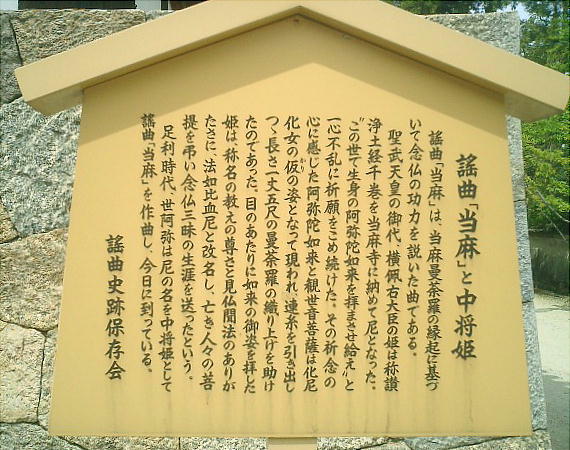 謡曲「当麻」と中将姫
謡曲「当麻」は、当麻曼荼羅の縁起に基づ
いて念仏の功力を説いた曲である。
聖武天皇の御代、横佩右大臣の姫は称讃
浄土経千巻を当麻寺に納めて尼となった。
“この世で生身の阿弥陀如来を拝まさせ給え”と
一心不乱に祈願をこめ続けた。その祈念の
心に感じた阿弥陀如来と観世音菩薩は化尼
化女の仮(かり)の姿となって現われ、連糸を引き出し
つゝ長さ一丈五尺の曼荼羅の織り上げを助け
たのであった。目のあたりに如来の御姿を拝した
姫は、称名の教えの尊さと見仏聞法のありが
たさに、法如比丘尼と改名し、亡き人々の菩
提を弔い念仏三昧の生涯を送ったという。
足利時代、世阿弥は尼の名を中将姫として
謡曲「当麻」を作曲し、今日に到っている。
謡曲史跡保存会